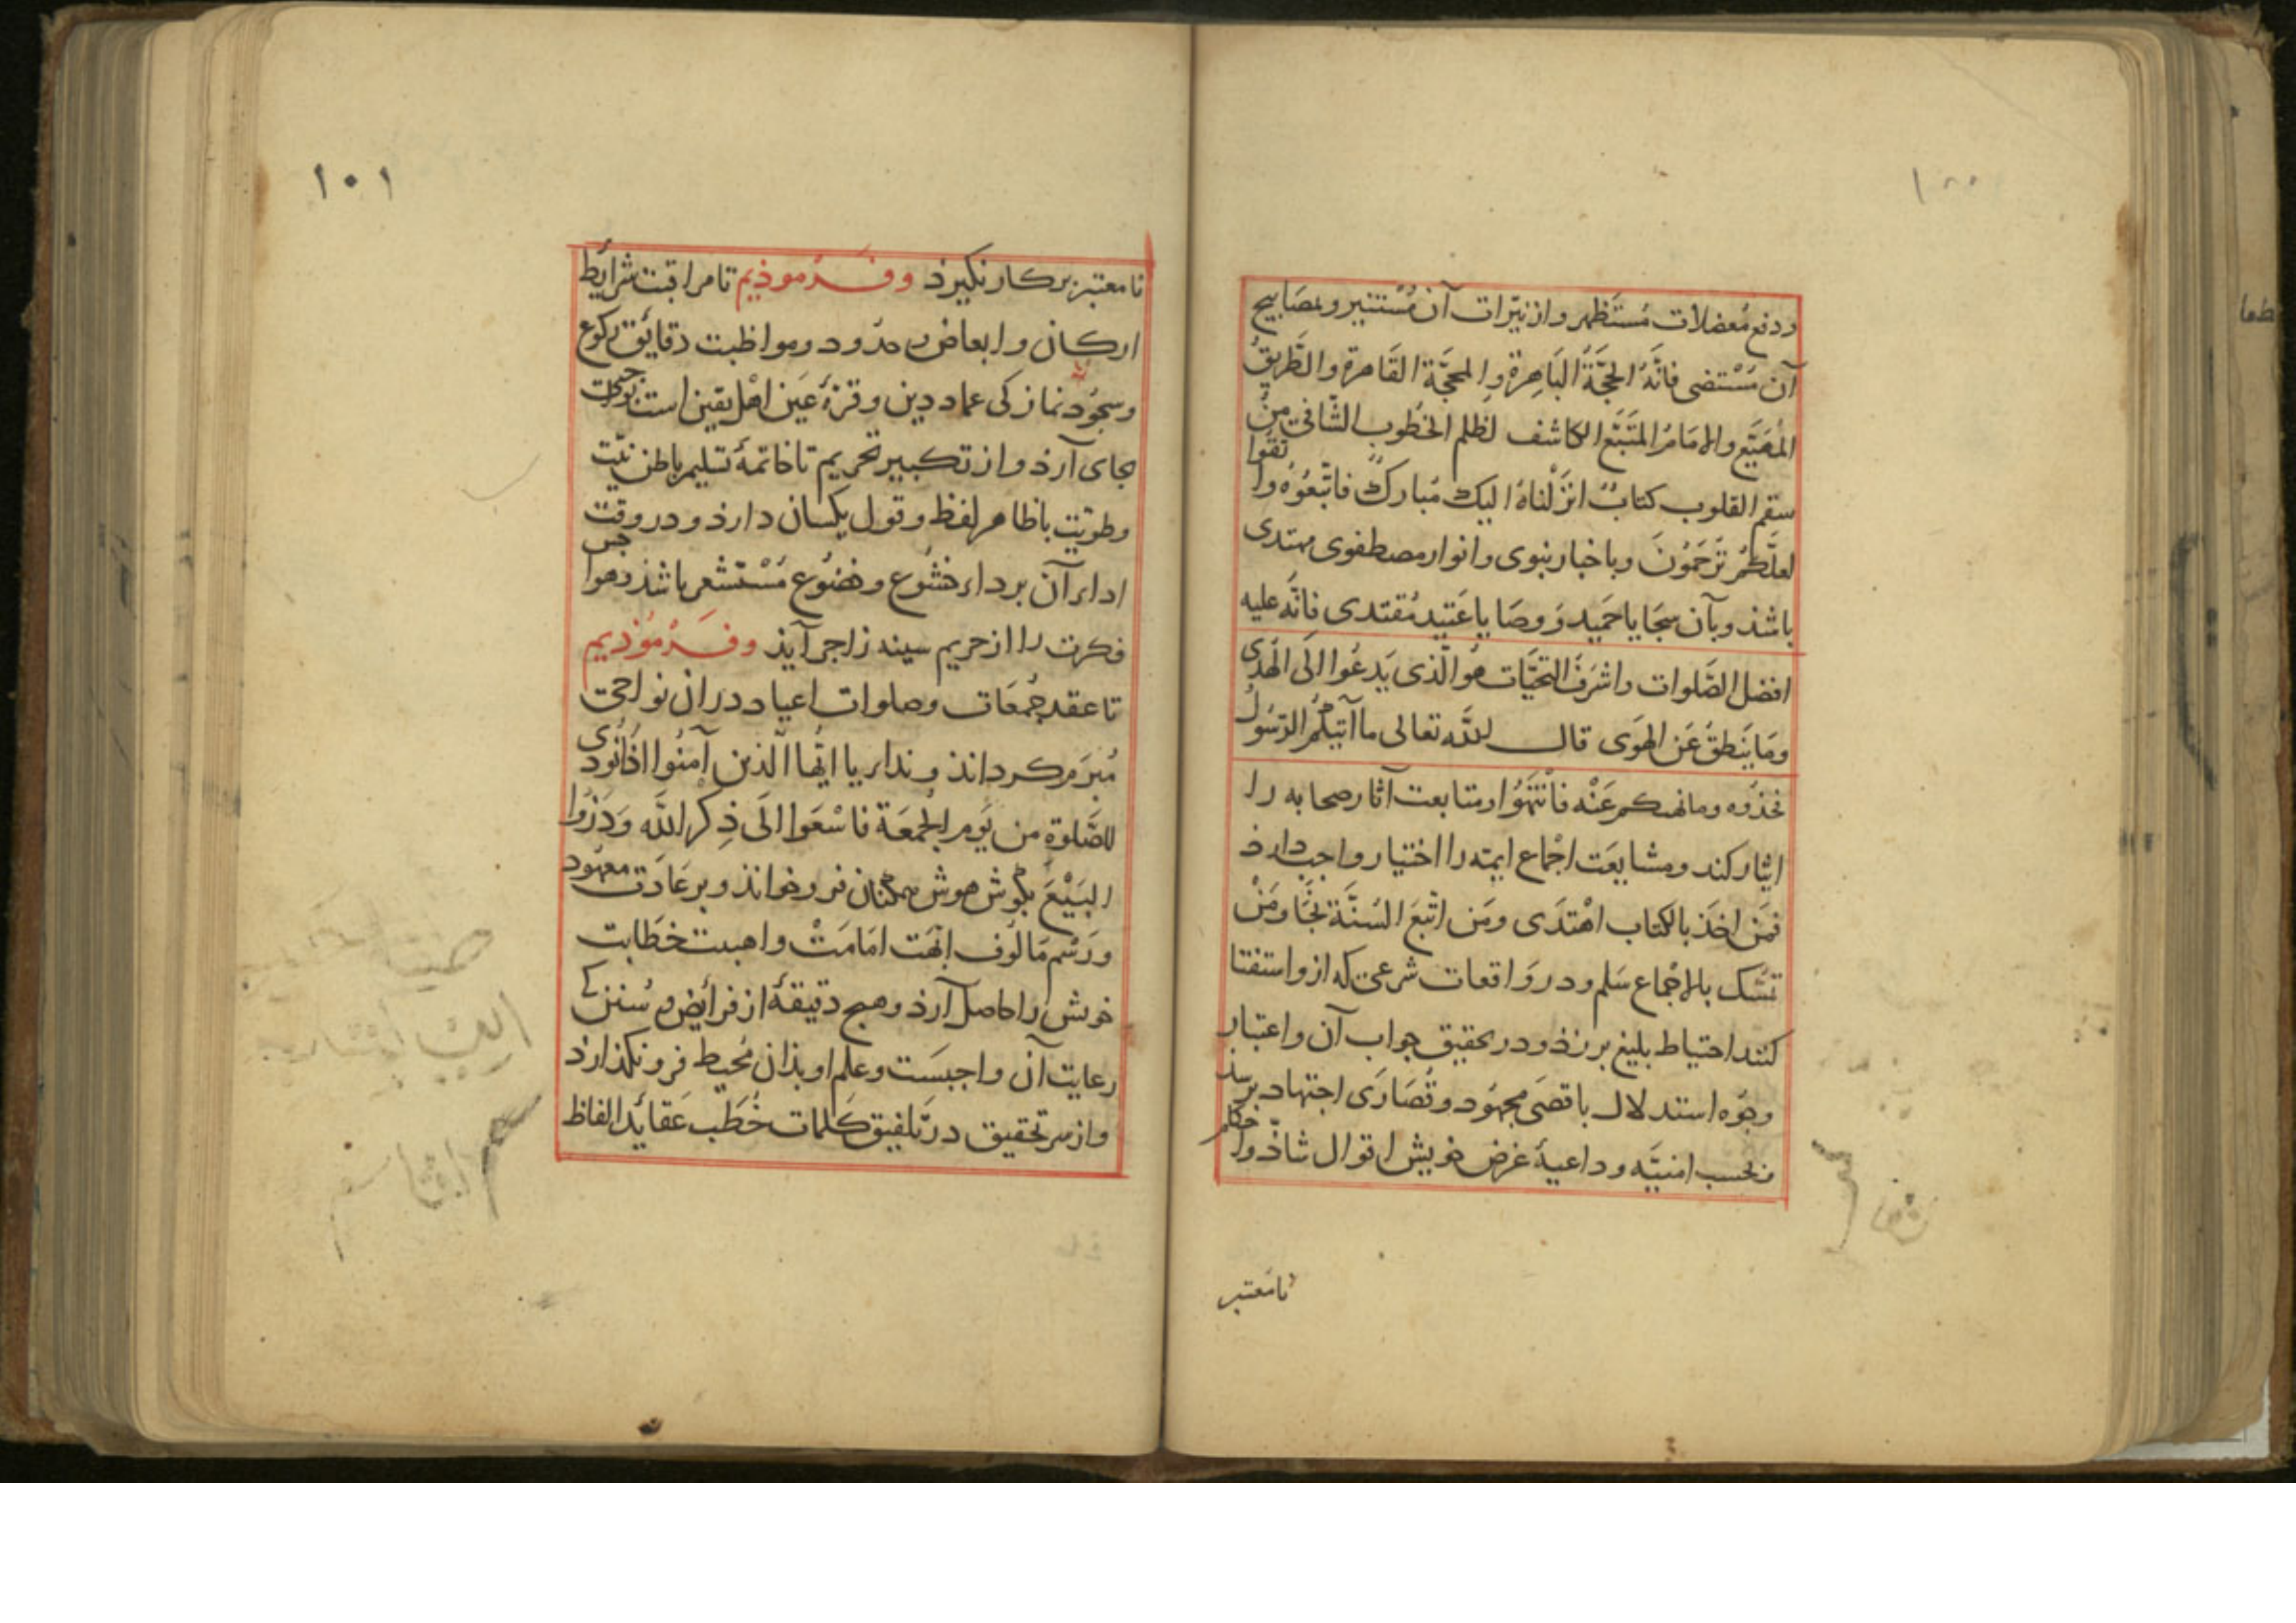 ١٠٠
و دفع مُعضلات مُستَظهر و از نیّرات آن مُستنیر و بمصابیح
آن مُسْتضی فانَّهُ الحجَّةُ البَاهِرة و المحجَّة القَاهرة والطَّریقُ
المُهَیَّع والامَامُ المتَّبَّع الکاشف لظلم الخطُوب الشّافی منْ
سقم القلوب کتابٌ انزَلْناهُ الیك مُبارکٌ فاتّبعُوْهُ واتَّقُوا
لعلّکُمْ تُرْحَمُوْنَ و باخبار نبوی و انوار مصطفوی مهتدی
باشذ و بآن سجَایا حَمِیدَ وَ وصَایا عَتِید مُقتدی فانَّه علیه
افضل الصَّلوات واشرَفُ التحیَّات هُوالّذی یَدعُوا الَی الهُدی
ومَا یَنطِقُ عَنِ الهَوَی قال اللّه تعالی ما آتیکُمُ الرّسُولُ
فخذُوه وما نهیکم عَنْه فانْتَهُوْا و متابعت آثار صحابه را
ایثار کند و مشایعَت اجْماع ایمّه را اختیار واجب دارذ
فمَن اخَذ بالکتاب اهْتدَی ومَن اتّبعَ السُنَّة نَجَا ومَنْ
تمسَّك بالاجْماع سَلم و در وَاقعات شرعی که ازو استفتا
کنند احتیاط بلیغ برزذ و در تحقیق جواب آن و اعتبار
وجُوه استدلال باقصَی مجهُود و قُصَارَی اجتهاد برسذ
و بحسب امنیَّه و داعیهٔ غرض خویش اقوال شاذّ و احکام
نامُعتبر
١٠١
نامعتبر برکار نکیرذ و فَرْموذیم تا مراقبت شرایط
ارکان و ابعاض و حدُود و مواظبت دقایق رکوع
و سجُود نماز کی عماد دین و قرّهٔ عَین اهْل یقین است بوجهی
بجای آرذ و از تکبیر تحریم تا خاتمهٔ تسلیم باطن نیّت
و طویّت باظاهر لفظ و قول یکسان دارذ و در وقت
اداء آن برداء خشُوع و خضُوع مُسْتشعر باشذ و هواجس
فکرت را از حریم سینه زاجر آیذ و فَرْمُوْذیم
تا عقد جُمعَات و صلوات اعیاد در ان نواحی
مُبرَم کرداند و نداء یا ایُّها الّذین آمنُوا اذَا نُودی
للصَّلوةِ من یَوم الجُمعَة فاسْعَوا الَی ذِکر اللَّه وَذَرُوا
البَیْعَ بکوش هوش همکنان فرو خواند و بر عَادَت معهُود
و رَسْم مَالُوف ابّهَت امَامَتْ و اهبت خطَابت
خویش را حاصل آرذ و هیچ دقیقهٔ از فرایض و سُنن کی
رعایت آن واجبَست و علم او بذان مُحیط فرو نکذارذ
و از سر تحقیق در تلفیق کلمات خُطَب عَقاید الفاظ